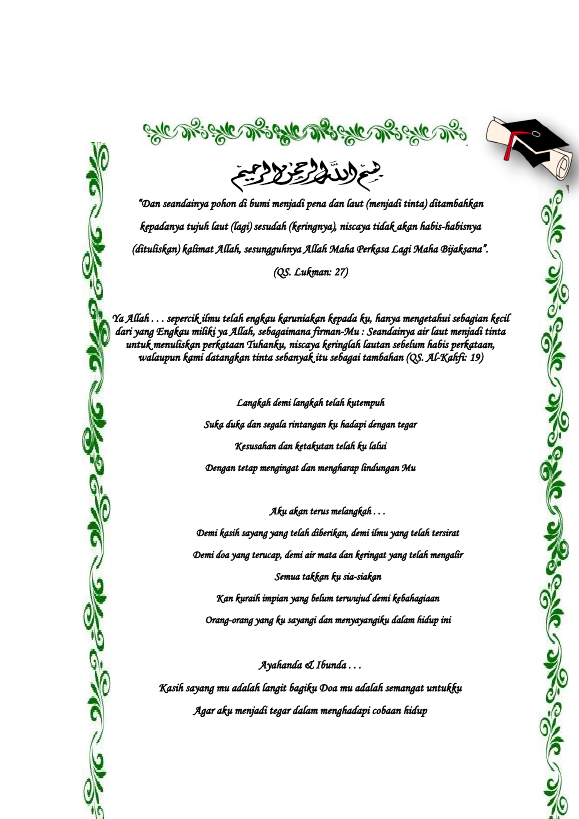 بسم الله الرحمن الرحيم
“Dan seandainya pohon di bumi menjadi pena dan laut (menjadi tinta) ditambahkan
kepadanya tujuh laut (lagi) sesudah (keringnya), niscaya tidak akan habis-habisnya
(dituliskan) kalimat Allah, sesungguhnya Allah Maha Perkasa Lagi Maha Bijaksana”.
(QS. Lukman: 27)
Ya Allah . . . sepercik ilmu telah engkau karuniakan kepada ku, hanya mengetahui sebagian kecil
dari yang Engkau miliki ya Allah, sebagaimana firman-Mu : Seandainya air laut menjadi tinta
untuk menuliskan perkataan Tuhanku, niscaya keringlah lautan sebelum habis perkataan,
walaupun kami datangkan tinta sebanyak itu sebagai tambahan (QS. Al-Kahfi: 19)
Langkah demi langkah telah kutempuh
Suka duka dan segala rintangan ku hadapi dengan tegar
Kesusahan dan ketakutan telah ku lalui
Dengan tetap mengingat dan mengharap lindungan Mu
Aku akan terus melangkah . . .
Demi kasih sayang yang telah diberikan, demi ilmu yang telah tersirat
Demi doa yang terucap, demi air mata dan keringat yang telah mengalir
Semua takkan ku sia-siakan
Kan kuraih impian yang belum terwujud demi kebahagiaan
Orang-orang yang ku sayangi dan menyayangiku dalam hidup ini
Ayahanda & Ibunda . . .
Kasih sayang mu adalah langit bagiku Doa mu adalah semangat untukku
Agar aku menjadi tegar dalam menghadapi cobaan hidup